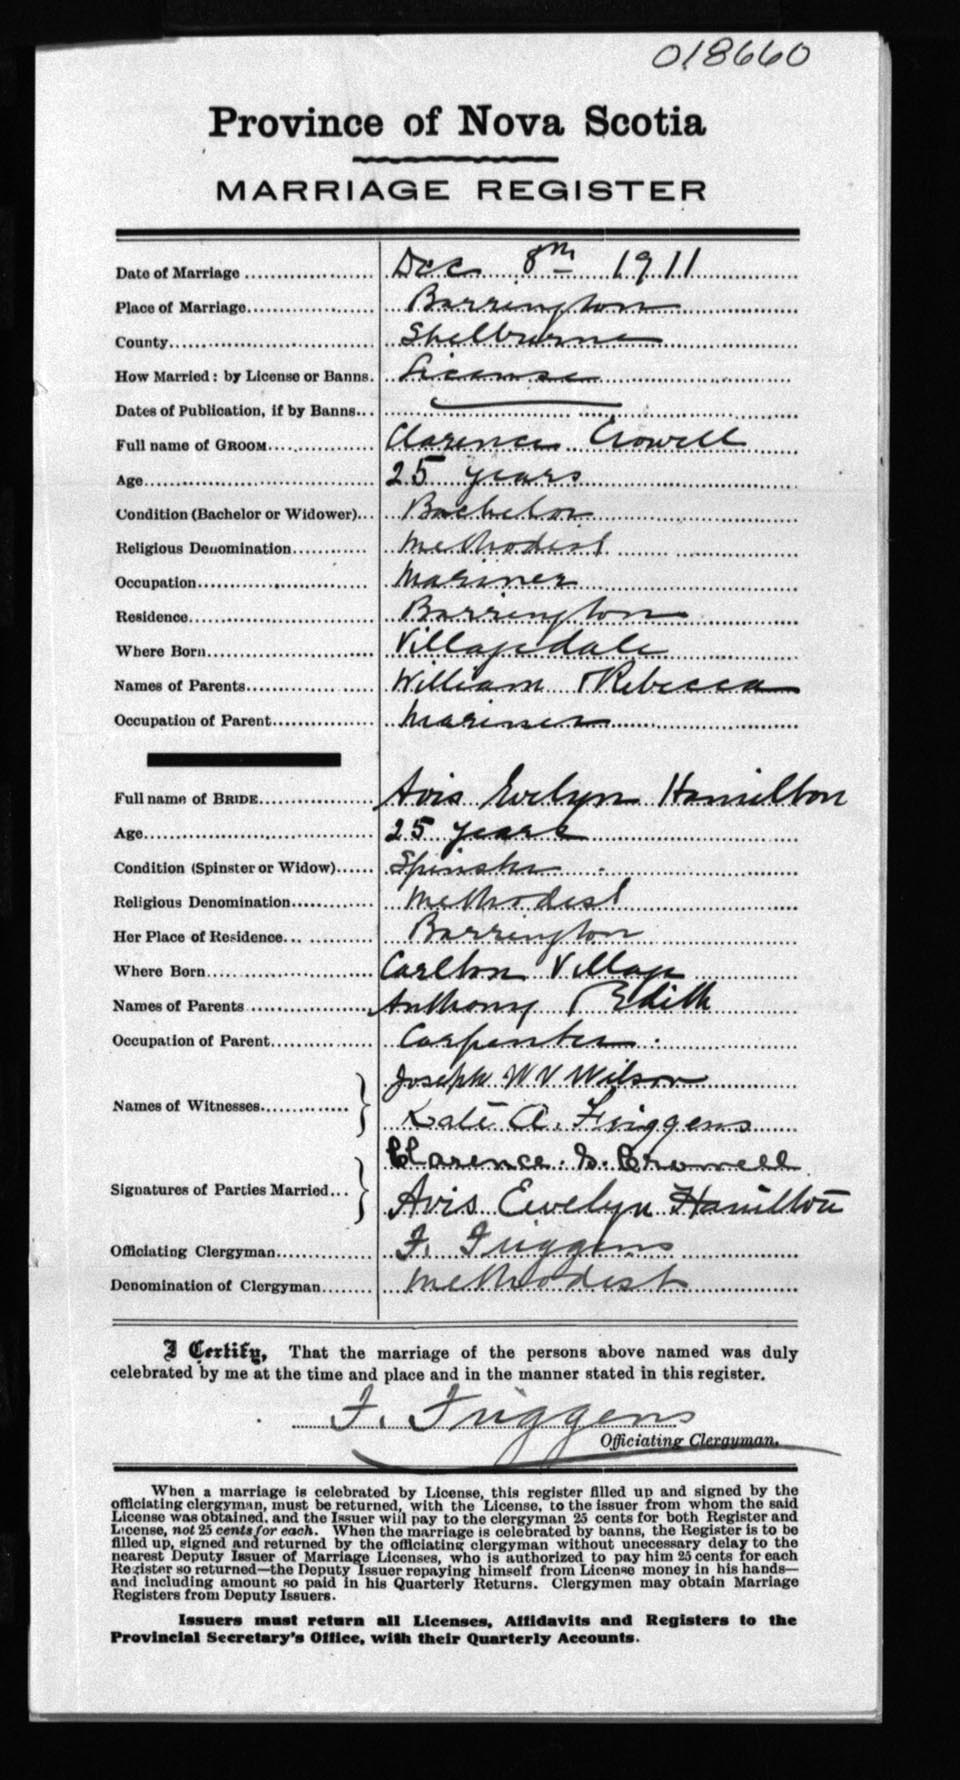 018660
Province of Nova Scotia
MARRIAGE REGISTER
Date of Marriage Dec 8th 1911
Place of Marriage Barrington
County Shelburne
How Married: by License or Banns. License
Dates of Publication, if by Banns
Full name of GROOM Clarence Crowell
Age 25 years
Condition (Bachelor or Widower) Bachelor
Religious Denomination Methodist
Occupation Mariner
Residence Barrington
Where Born Villagedale
Names of Parents William & Rebecca
Occupation of Parent Mariner
Full name of BRIDE Avis Evelyn Hamilton
Age 25 years
Condition (Spinster or Widow) Spinster
Religious Denomination Methodist
Her Place of Residence Barrington
Where Born Carlton Village
Names of Parents Anthony & Edith
Occupation of Parent Carpenter
Names of Witnesses Joseph W V Wilson
Kate A. Friggens
Signatures of Parties Married Clarence. S. Crowell
Avis Evelyn Hamilton
Officiating Clergyman F. Friggens
Denomination of Clergyman Methodist
I Certify, That the marriage of the persons above named was duly
celebrated by me at the time and place and in the manner stated in this register.
F. Friggens
Officiating Clergyman.
When a marriage is celebrated by License, this register filled up and signed by the
officiating clergyman, must be returned, with the License, to the issuer from whom the said
License was obtained, and the Issuer will pay to the clergyman 25 cents for both Register and
License, not 25 cents for each. When the marriage is celebrated by banns, the Register is to be
filled up, signed and returned by the officiating clergyman without unnecessary delay to the
nearest Deputy Issuer of Marriage Licenses, who is authorized to pay him 25 cents for each
Register so returned—the Deputy Issuer repaying himself from License money in his hands—
and including amount so paid in his Quarterly Returns. Clergymen may obtain Marriage
Registers from Deputy Issuers.
Issuers must return all Licenses, Affidavits and Registers to the
Provincial Secretary's Office, with their Quarterly Accounts.